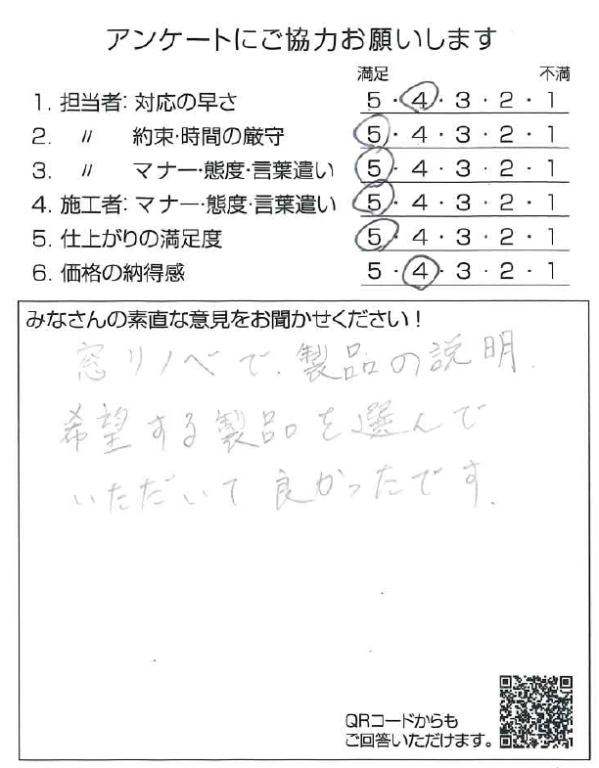 アンケートにご協力お願いします
満足 不満
1. 担当者: 対応の早さ 5・4・3・2・1
2. 〃 約束・時間の厳守 5・4・3・2・1
3. 〃 マナー・態度・言葉遣い 5・4・3・2・1
4. 施工者: マナー・態度・言葉遣い 5・4・3・2・1
5. 仕上がりの満足度 5・4・3・2・1
6. 価格の納得感 5・4・3・2・1
みなさんの素直な意見をお聞かせください!
窓リノベで、製品の説明、
希望する製品を選んで
いただいて良かったです。
QRコードからも
ご回答いただけます。